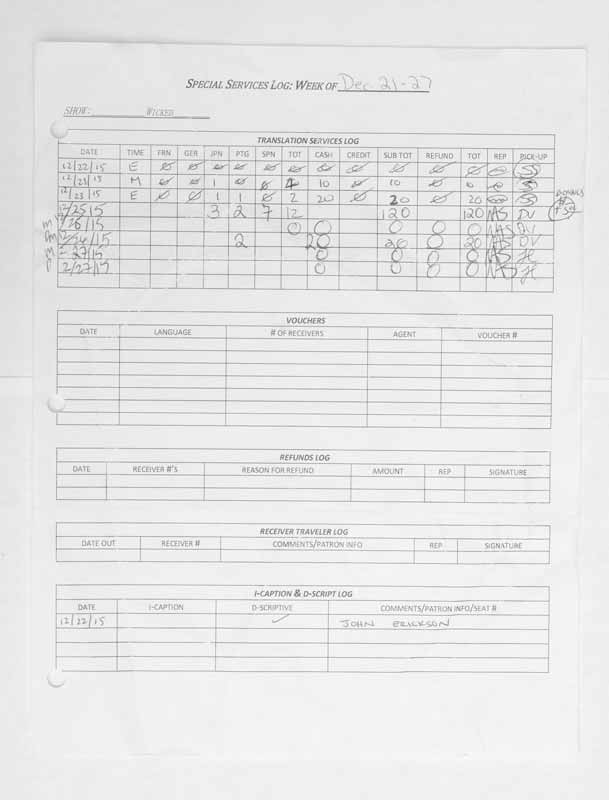 SPECIAL SERVICES LOG: WEEK OF Dec 21-27
SHOW: WICKED
TRANSLATION SERVICES LOG
DATE TIME FRN GER JPN PTG SPN TOT CASH CREDIT SUB TOT REFUND TOT REP PICK-UP
12/22/15 E Ø Ø Ø Ø Ø Ø Ø Ø Ø Ø Ø
12/23/15 M Ø Ø 1 Ø Ø 10 Ø 10 Ø
12/23/15 E Ø Ø 1 1 Ø 2 20 Ø 20 Ø 20
12/25/15 3 2 7 12 120 120 NAS DV
M /26/15 0 0 0 0 0 NAS DV
15 2 20 20 0 20 NAS DV
M 27/15 0 0 0 0 NAS JC
2/27/15 0 0 0 0 NAS JC
VOUCHERS
DATE LANGUAGE # OF RECEIVERS AGENT VOUCHER #
REFUNDS LOG
DATE RECEIVER #'S REASON FOR REFUND AMOUNT REP SIGNATURE
RECEIVER TRAVELER LOG
DATE OUT RECEIVER # COMMENTS/PATRON INFO REP SIGNATURE
I-CAPTION & D-SCRIPT LOG
DATE I-CAPTION D-SCRIPTIVE COMMENTS/PATRON INFO/SEAT #
12/22/15 ✓ JOHN ERICKSON